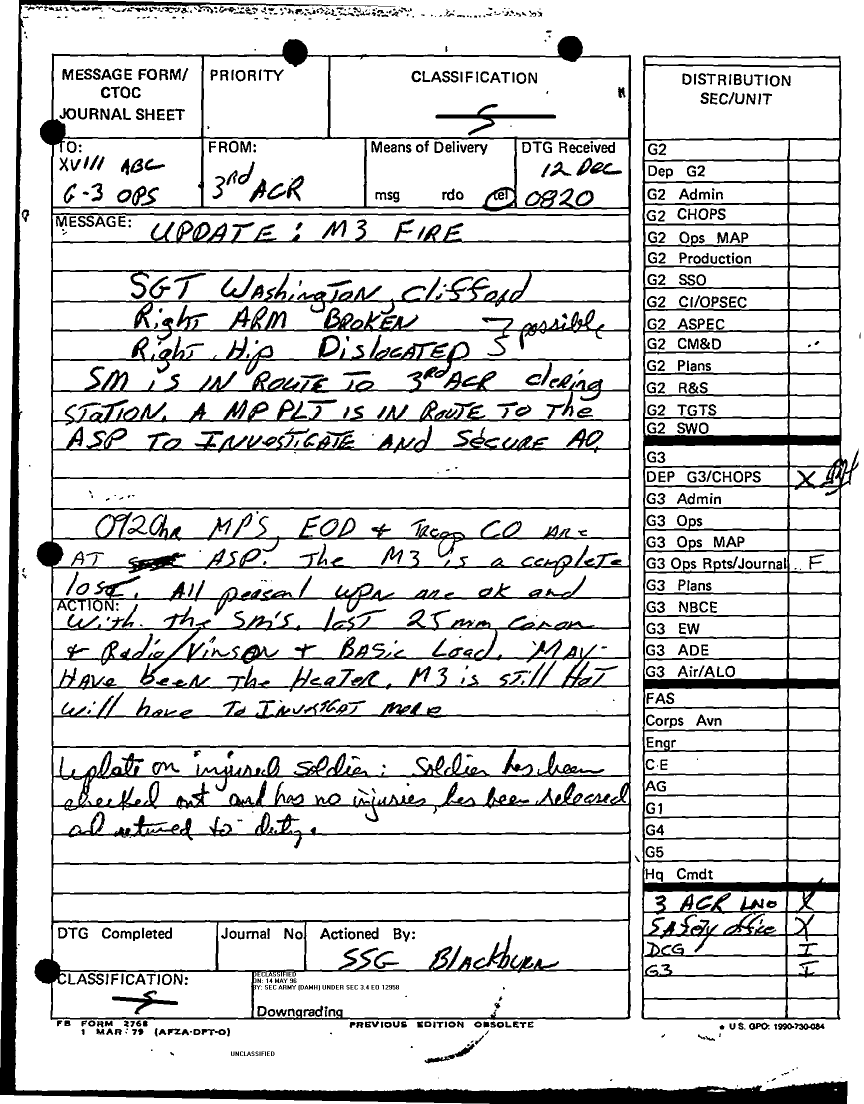 MESSAGE FORM/
CTOC
JOURNAL SHEET
PRIORITY
CLASSIFICATION
S
TO:
XVIII ABC
G-3 OPS
FROM:
3rd ACR
Means of Delivery
msg rdo tel
DTG Received
12 Dec
0820
MESSAGE:
UPDATE: M3 FIRE
SGT Washington, Clifford
Right ARM BROKEN
Right Hip DISLOCATED
possible
SM is IN ROUTE TO 3rd ACR clering
STATION. A MP PLT IS IN ROUTE TO The
ASP TO INVESTIGATE AND SECURE AO.
0920hr MPS, EOD + Troop CO are
AT ASP. The M3 is a complete
lost. All peasonl wpn are ok and
ACTION:
With the SM's. last 25mm Canon
+ Radio/Vinson + BASic Load. MAY
HAVE been The HeaTer. M3 is still HoT
will have To INVESTGAT more
Update on injured soldier: Soldier has been
checked out and has no injuries, has been released
ad returned to duty.
DTG Completed
Journal No
Actioned By:
SSG Blackburn
CLASSIFICATION:
S
DECLASSIFIED
ON: 14 MAY 96
BY: SEC ARMY (DAMH) UNDER SEC 3.4 EO 12958
Downgrading
FB FORM 2768
1 MAR 79 (AFZA-DPT-O)
PREVIOUS EDITION OBSOLETE
UNCLASSIFIED
DISTRIBUTION
SEC/UNIT
G2
Dep G2
G2 Admin
G2 CHOPS
G2 Ops MAP
G2 Production
G2 SSO
G2 CI/OPSEC
G2 ASPEC
G2 CM&D
G2 Plans
G2 R&S
G2 TGTS
G2 SWO
G3
DEP G3/CHOPS X
G3 Admin
G3 Ops
G3 Ops MAP
G3 Ops Rpts/Journal F
G3 Plans
G3 NBCE
G3 EW
G3 ADE
G3 Air/ALO
FAS
Corps Avn
Engr
CE
AG
G1
G4
G5
Hq Cmdt
3 ACR LNO X
SAfety office X
DCG I
G3 I
U.S. GPO: 1990-730-084